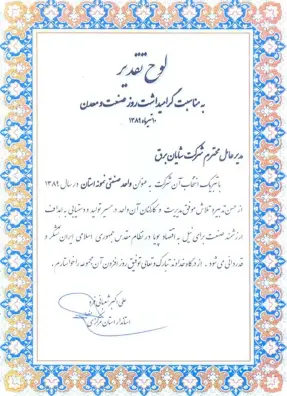 لوح تقدیر
به مناسبت گرامیداشت روز صنعت و معدن
۱۰ تیرماه ۱۳۸۹
مدیرعامل محترم شرکت شایان برق
با تبریک انتخاب آن شرکت به عنوان واحد صنعتی نمونه استان در سال ۱۳۸۹
از حسن تدبیر و تلاش موفق مدیریت و کارکنان آن واحد در مسیر تولید و دستیابی به اهداف
ارزشمند صنعت برای نیل به اقتصاد پویا در نظام مقدس جمهوری اسلامی ایران تشکر و
قدردانی می شود . از درگاه خداوند تبارک و تعالی توفیق روز افزون آن مجموعه را خواستارم .
علی اکبر شعبانی فرد
استاندار استان مرکزی